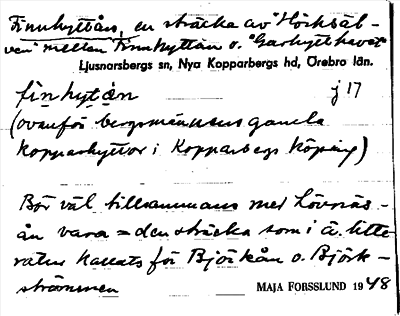 Finnhyttån, en sträcka av "Hörksäl-
ven" mellan Finnhyttan o. "Garhytthavet"
Ljusnarsbergs sn, Nya Kopparbergs hd, Örebro län.
finhytån j 17
(ovanför bergsmännens gamla
kopparhyttor i Kopparbergs köping)
Bör väl tillsammans med Lövnäs-
ån vara = den sträcka som i ä. litte-
ratur kallats för Björkån o. Björk-
strömmen
MAJA FORSSLUND 1948